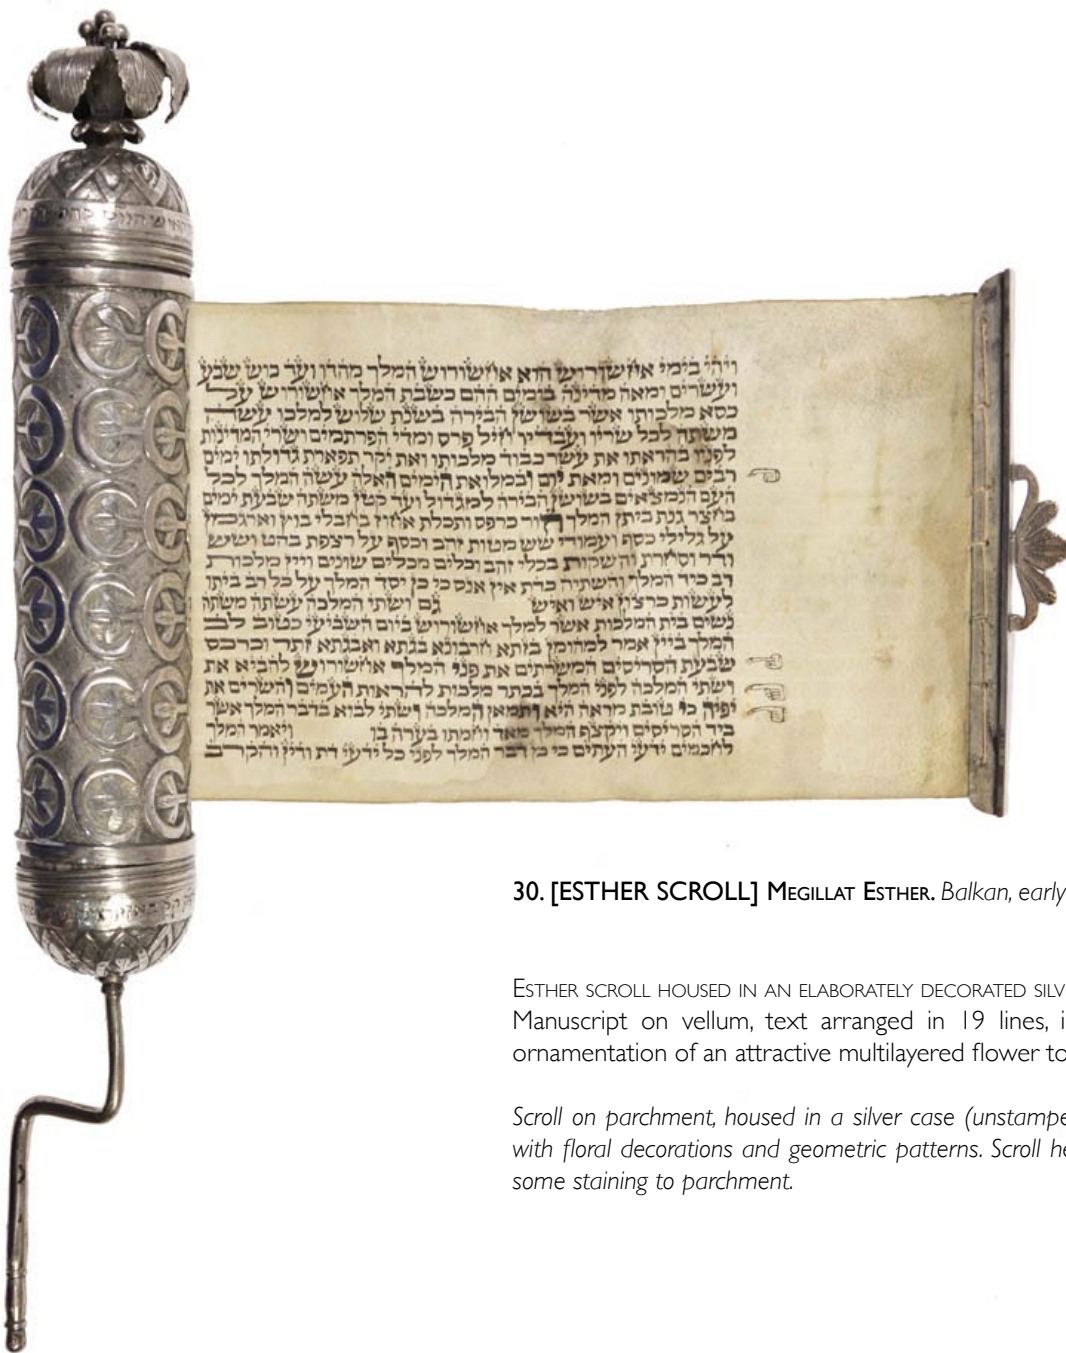 ויהי בימי אחשורוש הוא אחשורוש המלך מהדו ועד כוש שבע
ועשרים ומאה מדינה בימים ההם כשבת המלך אחשורוש על
כסא מלכותו אשר בשושן הבירה בשנת שלוש למלכו עשה
משתה לכל שריו ועבדיו חיל פרס ומדי הפרתמים ושרי המדינות
לפניו בהראתו את עשר כבוד מלכותו ואת יקר תפארת גדולתו ימים
רבים שמונים ומאת יום ובמלואת הימים האלה עשה המלך לכל
העם הנמצאים בשושן הבירה למגדול ועד קטן משתה שבעת ימים
בחצר גנת ביתן המלך חור כרפס ותכלת אחוז בחבלי בוץ וארגמן
על גלילי כסף ועמודי שש מטות זהב וכסף על רצפת בהט ושש
ודר וסחרת והשקות בכלי זהב וכלים מכלים שונים ויין מלכות
רב כיד המלך והשתיה כדת אין אנס כי כן יסד המלך על כל רב ביתו
לעשות כרצון איש ואיש גם ושתי המלכה עשתה משתה
נשים בית המלכות אשר למלך אחשורוש ביום השביעי כטוב לב
המלך ביין אמר למהומן בזתא חרבונא בגתא ואבגתא זתר וכרכס
שבעת הסריסים המשרתים את פני המלך אחשורוש להביא את
ושתי המלכה לפני המלך בכתר מלכות להראות העמים והשרים את
יפיה כי טובת מראה היא ותמאן המלכה ושתי לבוא בדבר המלך אשר
ביד הסריסים ויקצף המלך מאד וחמתו בערה בו ויאמר המלך
לחכמים ידעי העתים כי כן דבר המלך לפני כל ידעי דת ודין והקרב
30. [ESTHER SCROLL] MEGILLAT ESTHER. Balkan, early
ESTHER SCROLL HOUSED IN AN ELABORATELY DECORATED SILV
Manuscript on vellum, text arranged in 19 lines, i
ornamentation of an attractive multilayered flower to
Scroll on parchment, housed in a silver case (unstampe
with floral decorations and geometric patterns. Scroll he
some staining to parchment.